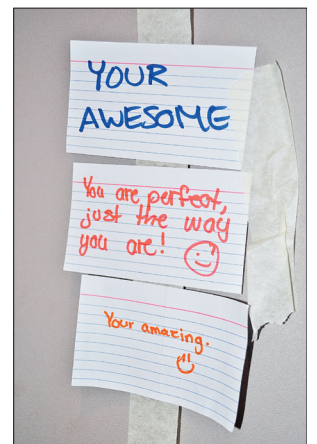 YOUR
AWESOME
You are perfect,
just the way
you are!
Your amazing.